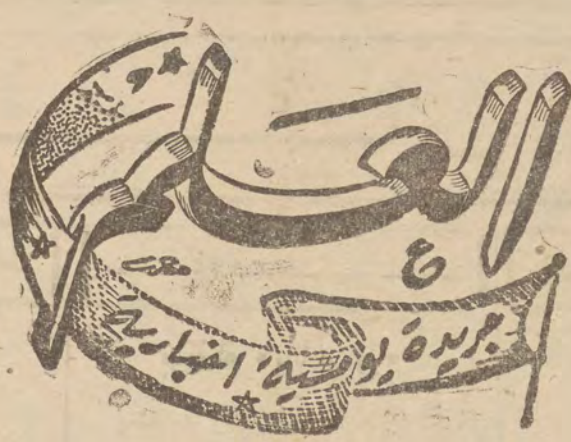 العلم
جريدة يومية اخبارية